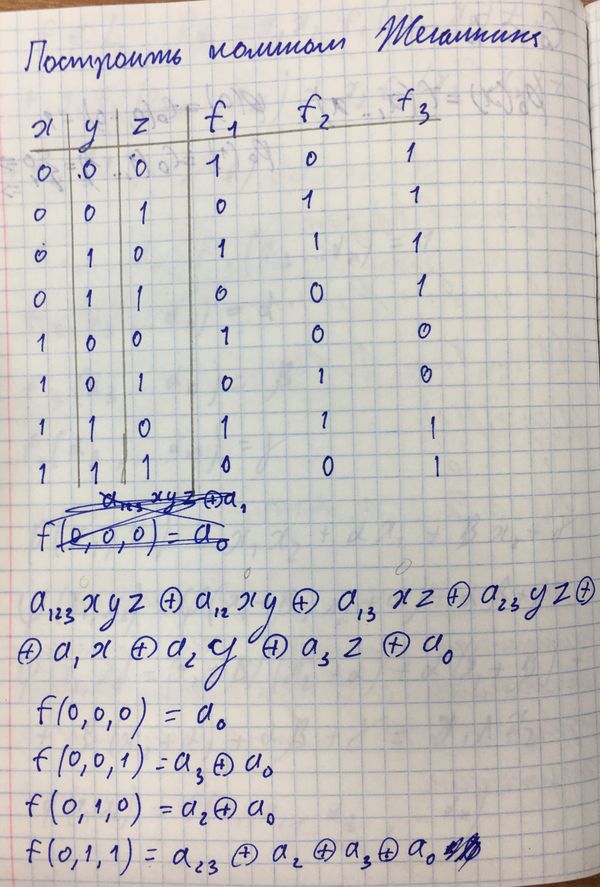 Построить полином Жегалкина
x y z f₁ f₂ f₃
0 0 0 1 0 1
0 0 1 0 1 1
0 1 0 1 1 1
0 1 1 0 0 1
1 0 0 1 0 0
1 0 1 0 1 0
1 1 0 1 1 1
1 1 1 0 0 1
a₁₂₃ xyz ⊕ a₁
f(0,0,0) = a₀
a₁₂₃ xyz ⊕ a₁₂ xy ⊕ a₁₃ xz ⊕ a₂₃ yz ⊕
⊕ a₁ x ⊕ a₂ y ⊕ a₃ z ⊕ a₀
f(0,0,0) = a₀
f(0,0,1) = a₃ ⊕ a₀
f(0,1,0) = a₂ ⊕ a₀
f(0,1,1) = a₂₃ ⊕ a₂ ⊕ a₃ ⊕ a₀